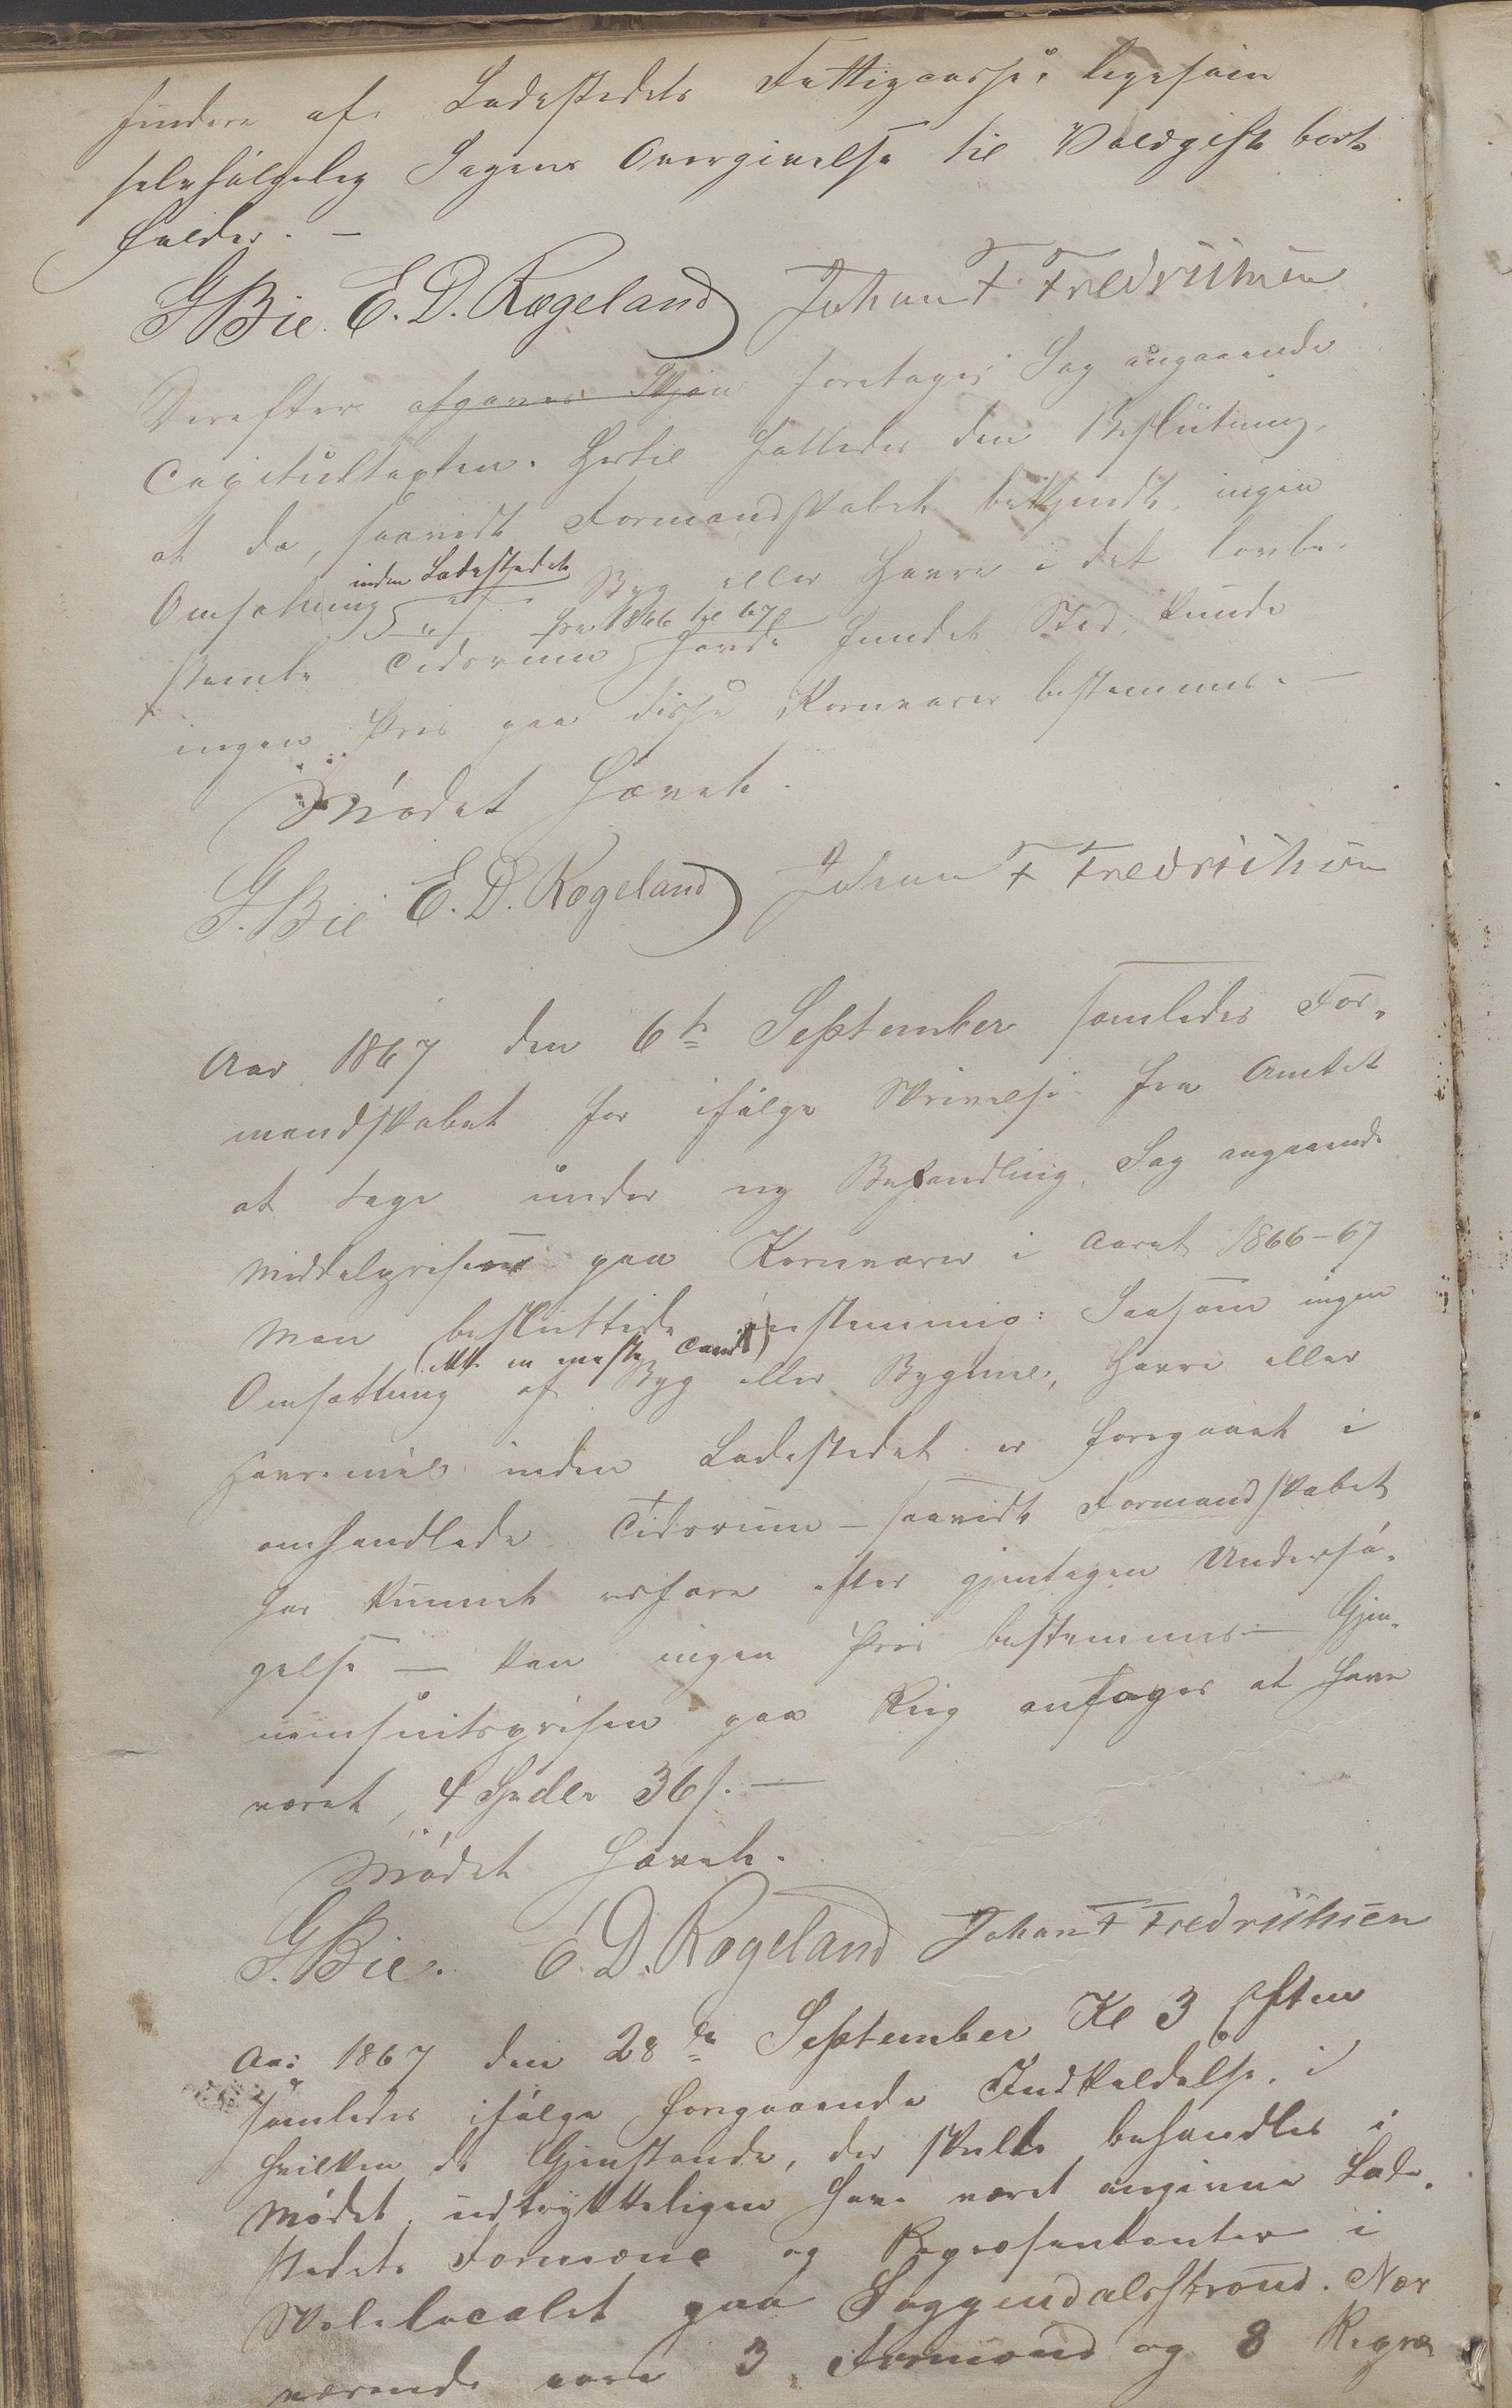 findes af Ladestedets Fattigcasse, ligesom
selvfølgelig Sagens Overgivelse til Voldgift bort-
falder. —
GBie. E. D. Rægeland Johan F Fredrichsen
Derefter afgaves Skjøn foretoges Sag angaaende
Capitultaxten. Hertil fattedes den Beslutning,
at da, saavidt Formandskabet bekjendt, ingen
inden Ladestedet
Omsætning af Byg eller Havre i det lovbe-
fra 1866 til 67
stemte Tidsrum havde fundet Sted, kunde
ingen Priis paa disse Kornvarer bestemmes. —
Mødet hævet.
G. Bie E. D. Rægeland Johan F Fredrichsen
Aar 1867 den 6te September samledes For-
mandskabet for ifølge Skrivelse fra Amtet
at tage under ny Behandling, Sag angaaende
Middelprisen paa Kornvarer i Aaret 1866-67
Man besluttede eenstemmig: Saasom ingen
Omsætning af Byg eller Bygmel, Havre eller
Havremel inden Ladestedet er foregaaet i
omhandlede Tidsrum – saavidt Formandskabet
har kunnet erfare efter gjentagen Undersø-
gelse — kan ingen Priis bestemmes — Gjen-
nemsnitsprisen paa Rug antages at have
været, 4 Spdlr 36 s. —
Mødet hævet.
G. Bie. E. D. Rægeland Johan F Fredrichsen
Aar 1867 den 28de September Kl 3 Efterm
samledes ifølge foregaaende Indkaldelse, i
hvilken de Gjenstande, der skulde behandles i
Mødet, udtrykkeligen have været angivne Lade-
stedets Formænd og Repræsentanter i
Skolelocalet paa Soggendalsstrand. Nær-
værende vare 3 Formænd og 8 Repræ-